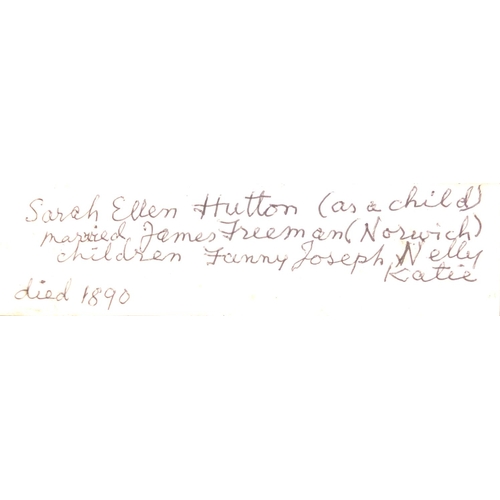 Sarah Ellen Hutton (as a child)
married James Freeman (Norwich)
children Fanny Joseph, Nelly
Katie
died 1890